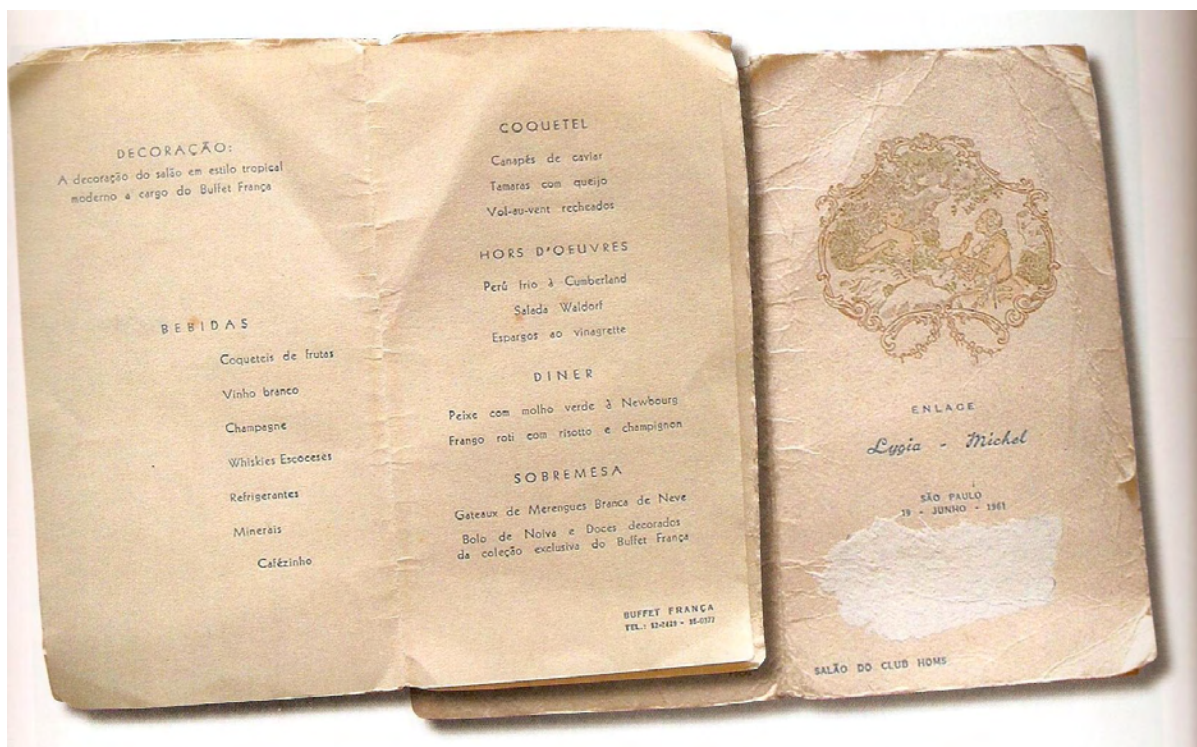 DECORAÇÃO:
A decoração do salão em estilo tropical
moderno a cargo do Buffet França
BEBIDAS
Coqueteis de frutas
Vinho branco
Champagne
Whiskies Escoceses
Refrigerantes
Minerais
Cafèzinho
COQUETEL
Canapés de caviar
Tamaras com queijo
Vol-au-vent recheados
HORS D'OEUVRES
Perú frio à Cumberland
Salada Waldorf
Espargos ao vinagrette
DINER
Peixe com molho verde à Newbourg
Frango roti com risotto e champignon
SOBREMESA
Gateaux de Merengues Branca de Neve
Bolo de Noiva e Doces decorados
da coleção exclusiva do Buffet França
BUFFET FRANÇA
TEL.:
ENLACE
Lygia - Michel
SÃO PAULO
19 - JUNHO - 1961
SALÃO DO CLUB HOMS